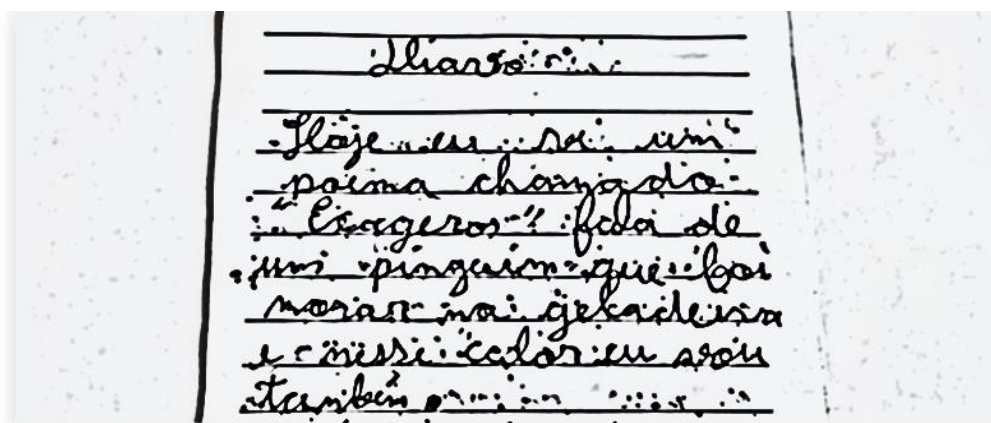 Diario
Hoje eu um
poema
"Exageros" fala de
um pinguim que foi
morar na geladeira
e nesse calor eu vou
tanbén